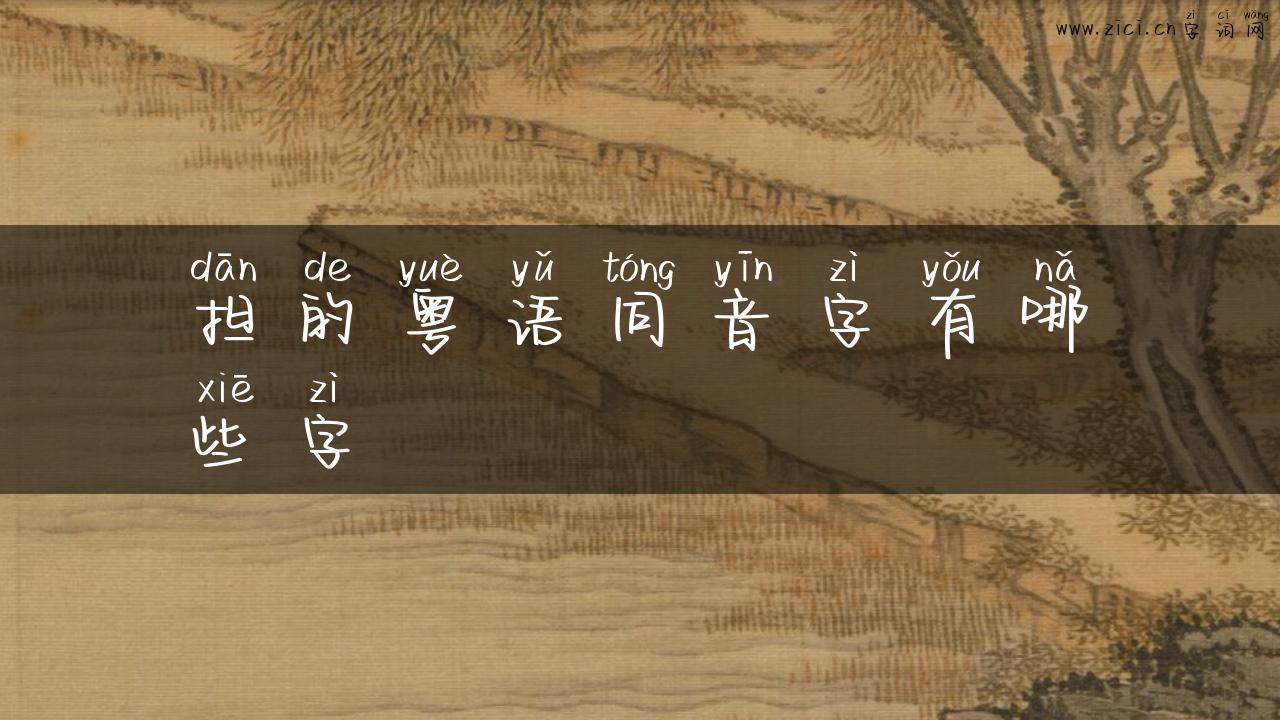 zì cí wǎng
www.zici.cn字词网
dān de yuè yǔ tóng yīn zì yǒu nǎ
担的粤语同音字有哪
xiē zì
些字